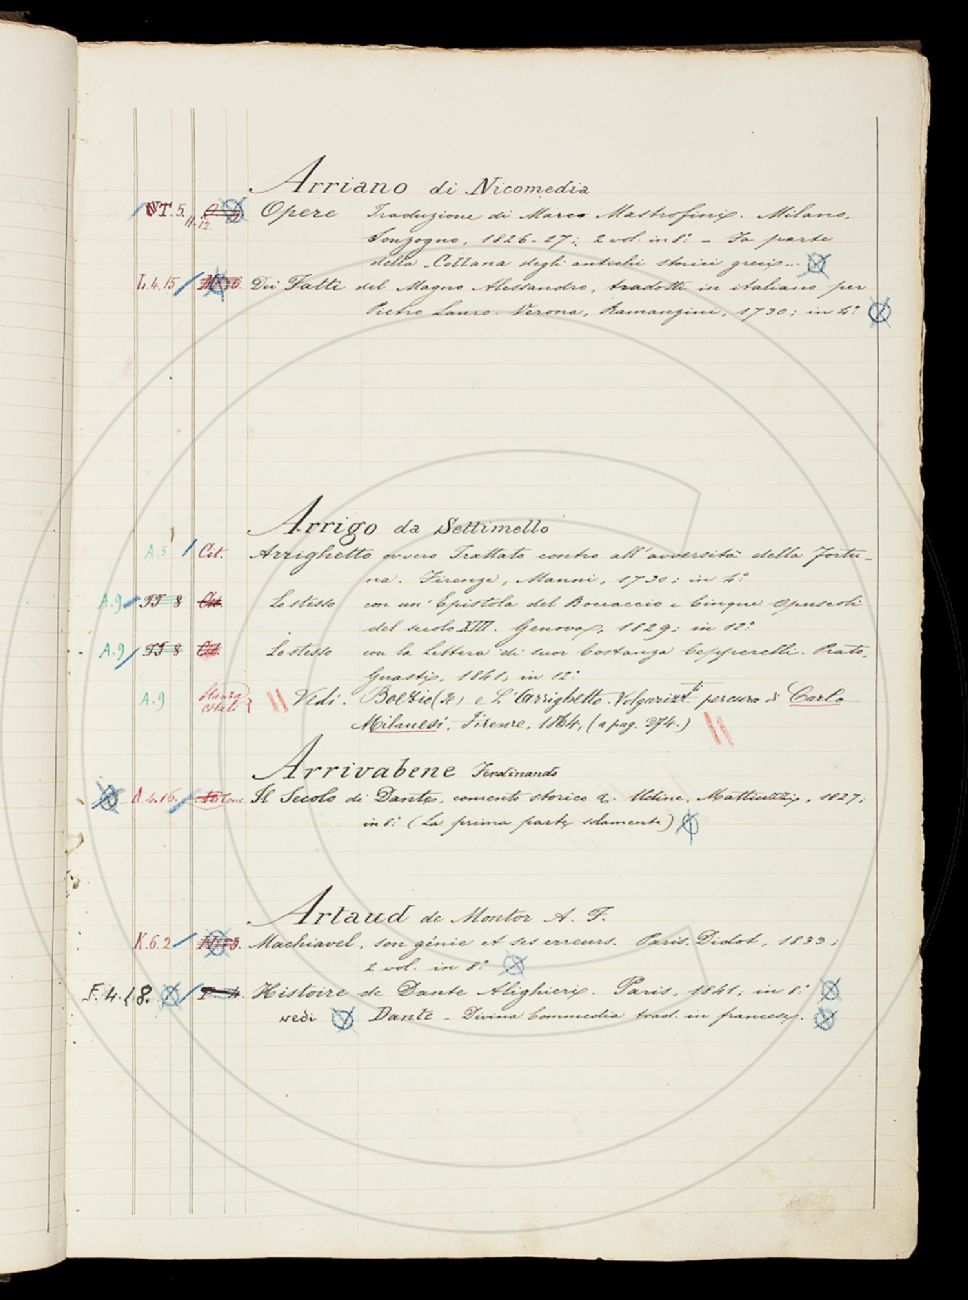 Arriano di Nicomedia
T. 5. 11-12. Opere Traduzione di Marco Mastrofini. Milano,
Sonzogno, 1826-27; 2 vol. in 8.° - Fa parte
della Collana degli antichi storici greci.
L. 4. 15 Dei Fatti del Magno Alessandro, tradotti in italiano per
Pietro Lauro. Verona, Ramanzini, 1730; in 4.°
Arrigo da Settimello
A. 5 Cit. Arrighetto ovvero Trattato contro all'avversità della Fortu-
na. Firenze, Manni, 1730; in 4.°
A. 9 TT 8 Cit. Lo stesso con un'Epistola del Boccaccio e Cinque Opuscoli
del secolo XIII. Genova, 1829; in 12.°
A. 9 TT 8 Cit. Lo stesso con la Lettera di suor Costanza Cepperelli. Prato,
Guasti, 1841, in 12.°
A. 9 Stanza Citati Vedi: Boezio e l'Arrighetto. Volgarizt.i per cura di Carlo
Milanesi. Firenze, 1864, (a pag. 274.)
Arrivabene Ferdinando
A. 4. 16. Il Secolo di Dante, comento storico &. Udine, Mattiuzzi, 1827;
in 8.° (La prima parte solamente)
Artaud de Montor A. F.
K. 6. 2 Machiavel, son génie et ses erreurs. Paris. Didot, 1833;
2 vol. in 8.°
F. 4. 18. Histoire de Dante Alighieri. Paris, 1841; in 8.°
vedi Dante - Divina Commedia trad. in francese.